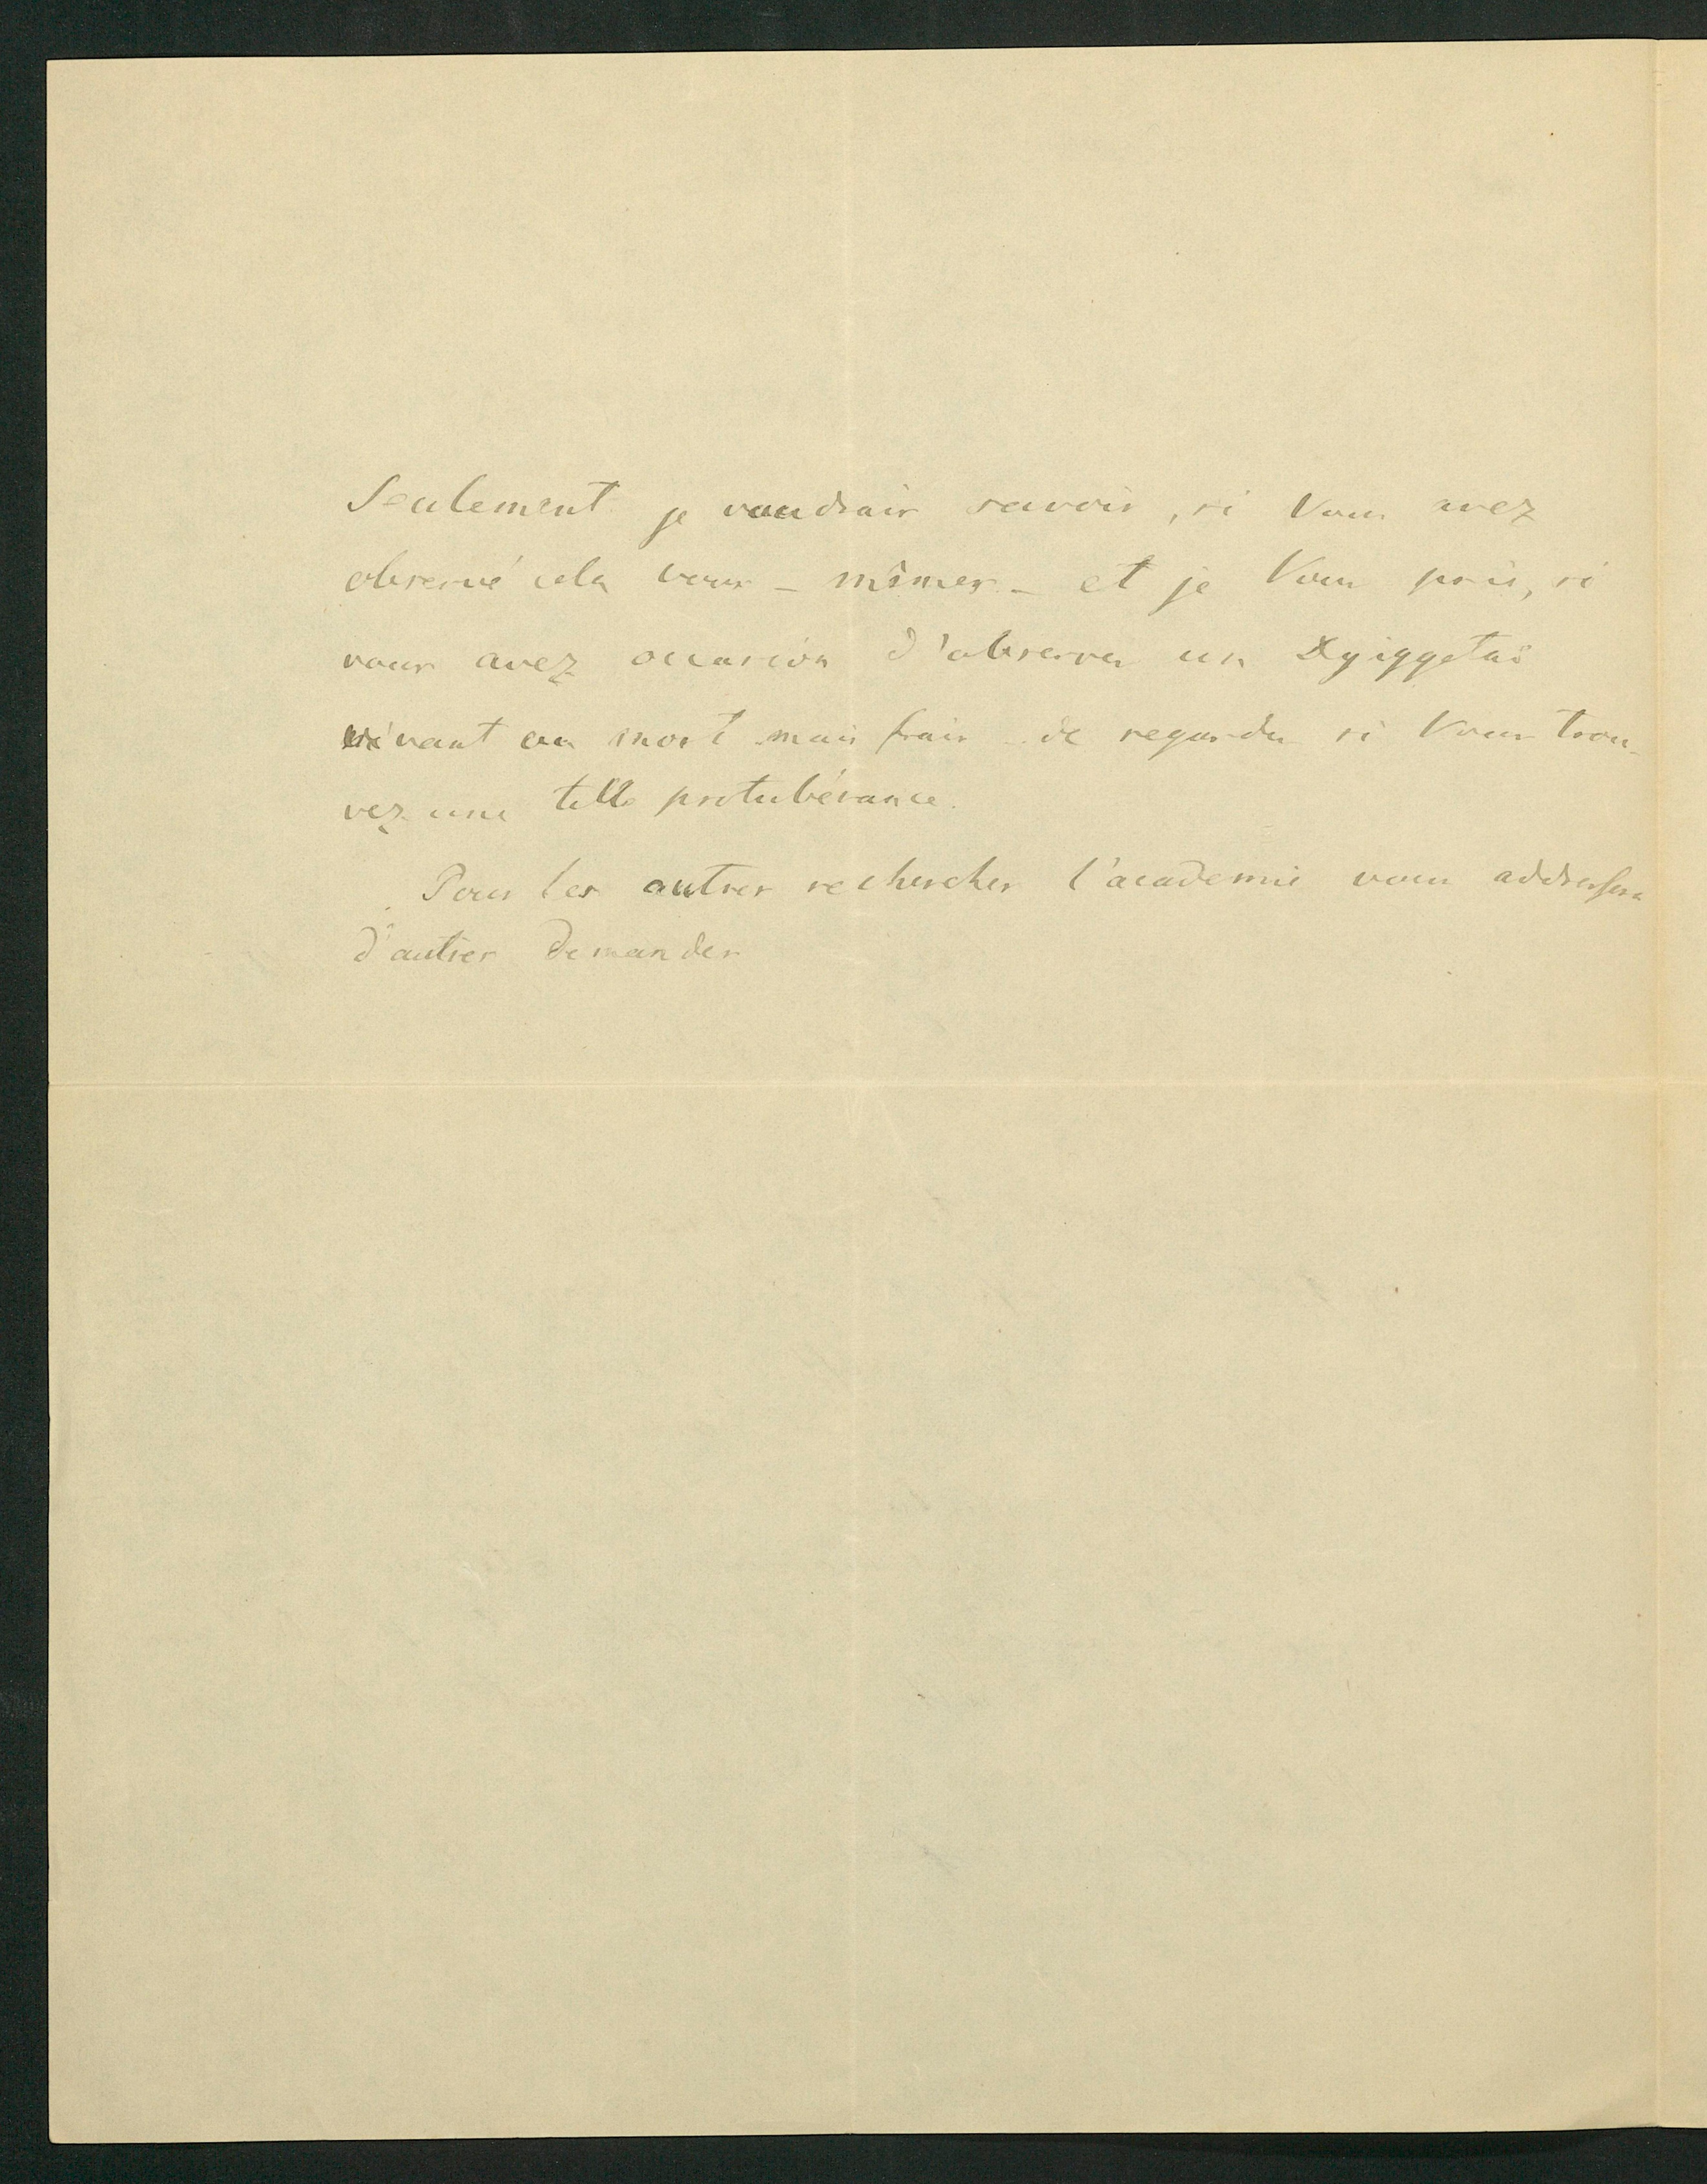 Seulement je voudrais savoir, si Vous avez
observé cela vous-mêmes - et je Vous prie, si
vous avez occasion d'observer un Dyiggetai
vivant ou mort mais frais - de regarder si Vous trou-
vez une telle protubérance.
Pour les autres recherches l'academie vous addressera
d'autres demandes